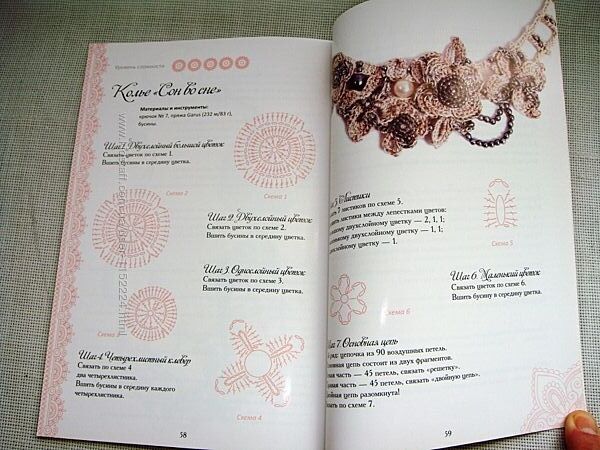 Уровень сложности
Колье «Сон во сне»
Материалы и инструменты:
крючок № 7, пряжа Garus (232 м/83 г),
бусины.
Шаг 1. Двухслойный большой цветок
Связать цветок по схеме 1.
Вшить бусины в середину цветка.
Схема 2
Схема 1
Шаг 2. Двухслойный цветок
Связать цветок по схеме 2.
Вшить бусины в середину цветка.
Шаг 3. Однослойный цветок
Связать цветок по схеме 3.
Вшить бусины в середину цветка.
Схема 3
Шаг 4. Четырехлистный клевер
Связать по схеме 4
два четырехлистника.
Вшить бусины в середину каждого
четырехлистника.
Схема 4
58
5. Листики
7 листиков по схеме 5.
листики между лепестками цветов:
двухслойному цветку — 2, 1, 1;
двухслойному цветку — 1, 1;
цветку — 1.
Схема 5
Шаг 6. Маленький цветок
Связать цветок по схеме 6.
Вшить бусины в середину цветка.
Схема 6
7. Основная цепь
ряд: цепочка из 90 воздушных петель.
цепь состоит из двух фрагментов.
часть — 45 петель, связать «решетку».
часть — 45 петель, связать «двойную цепь».
цепь разомкнута!
по схеме 7.
59